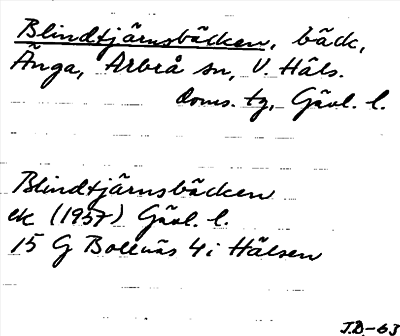 Blindtjärnsbäcken, bäck,
Änga, Arbrå sn, V. Häls.
doms. tg, Gävl. l.
Blindtjärnsbäcken
ek (1957) Gävl. l.
15 G Bollnäs 4 i Hälsen
J.D-63